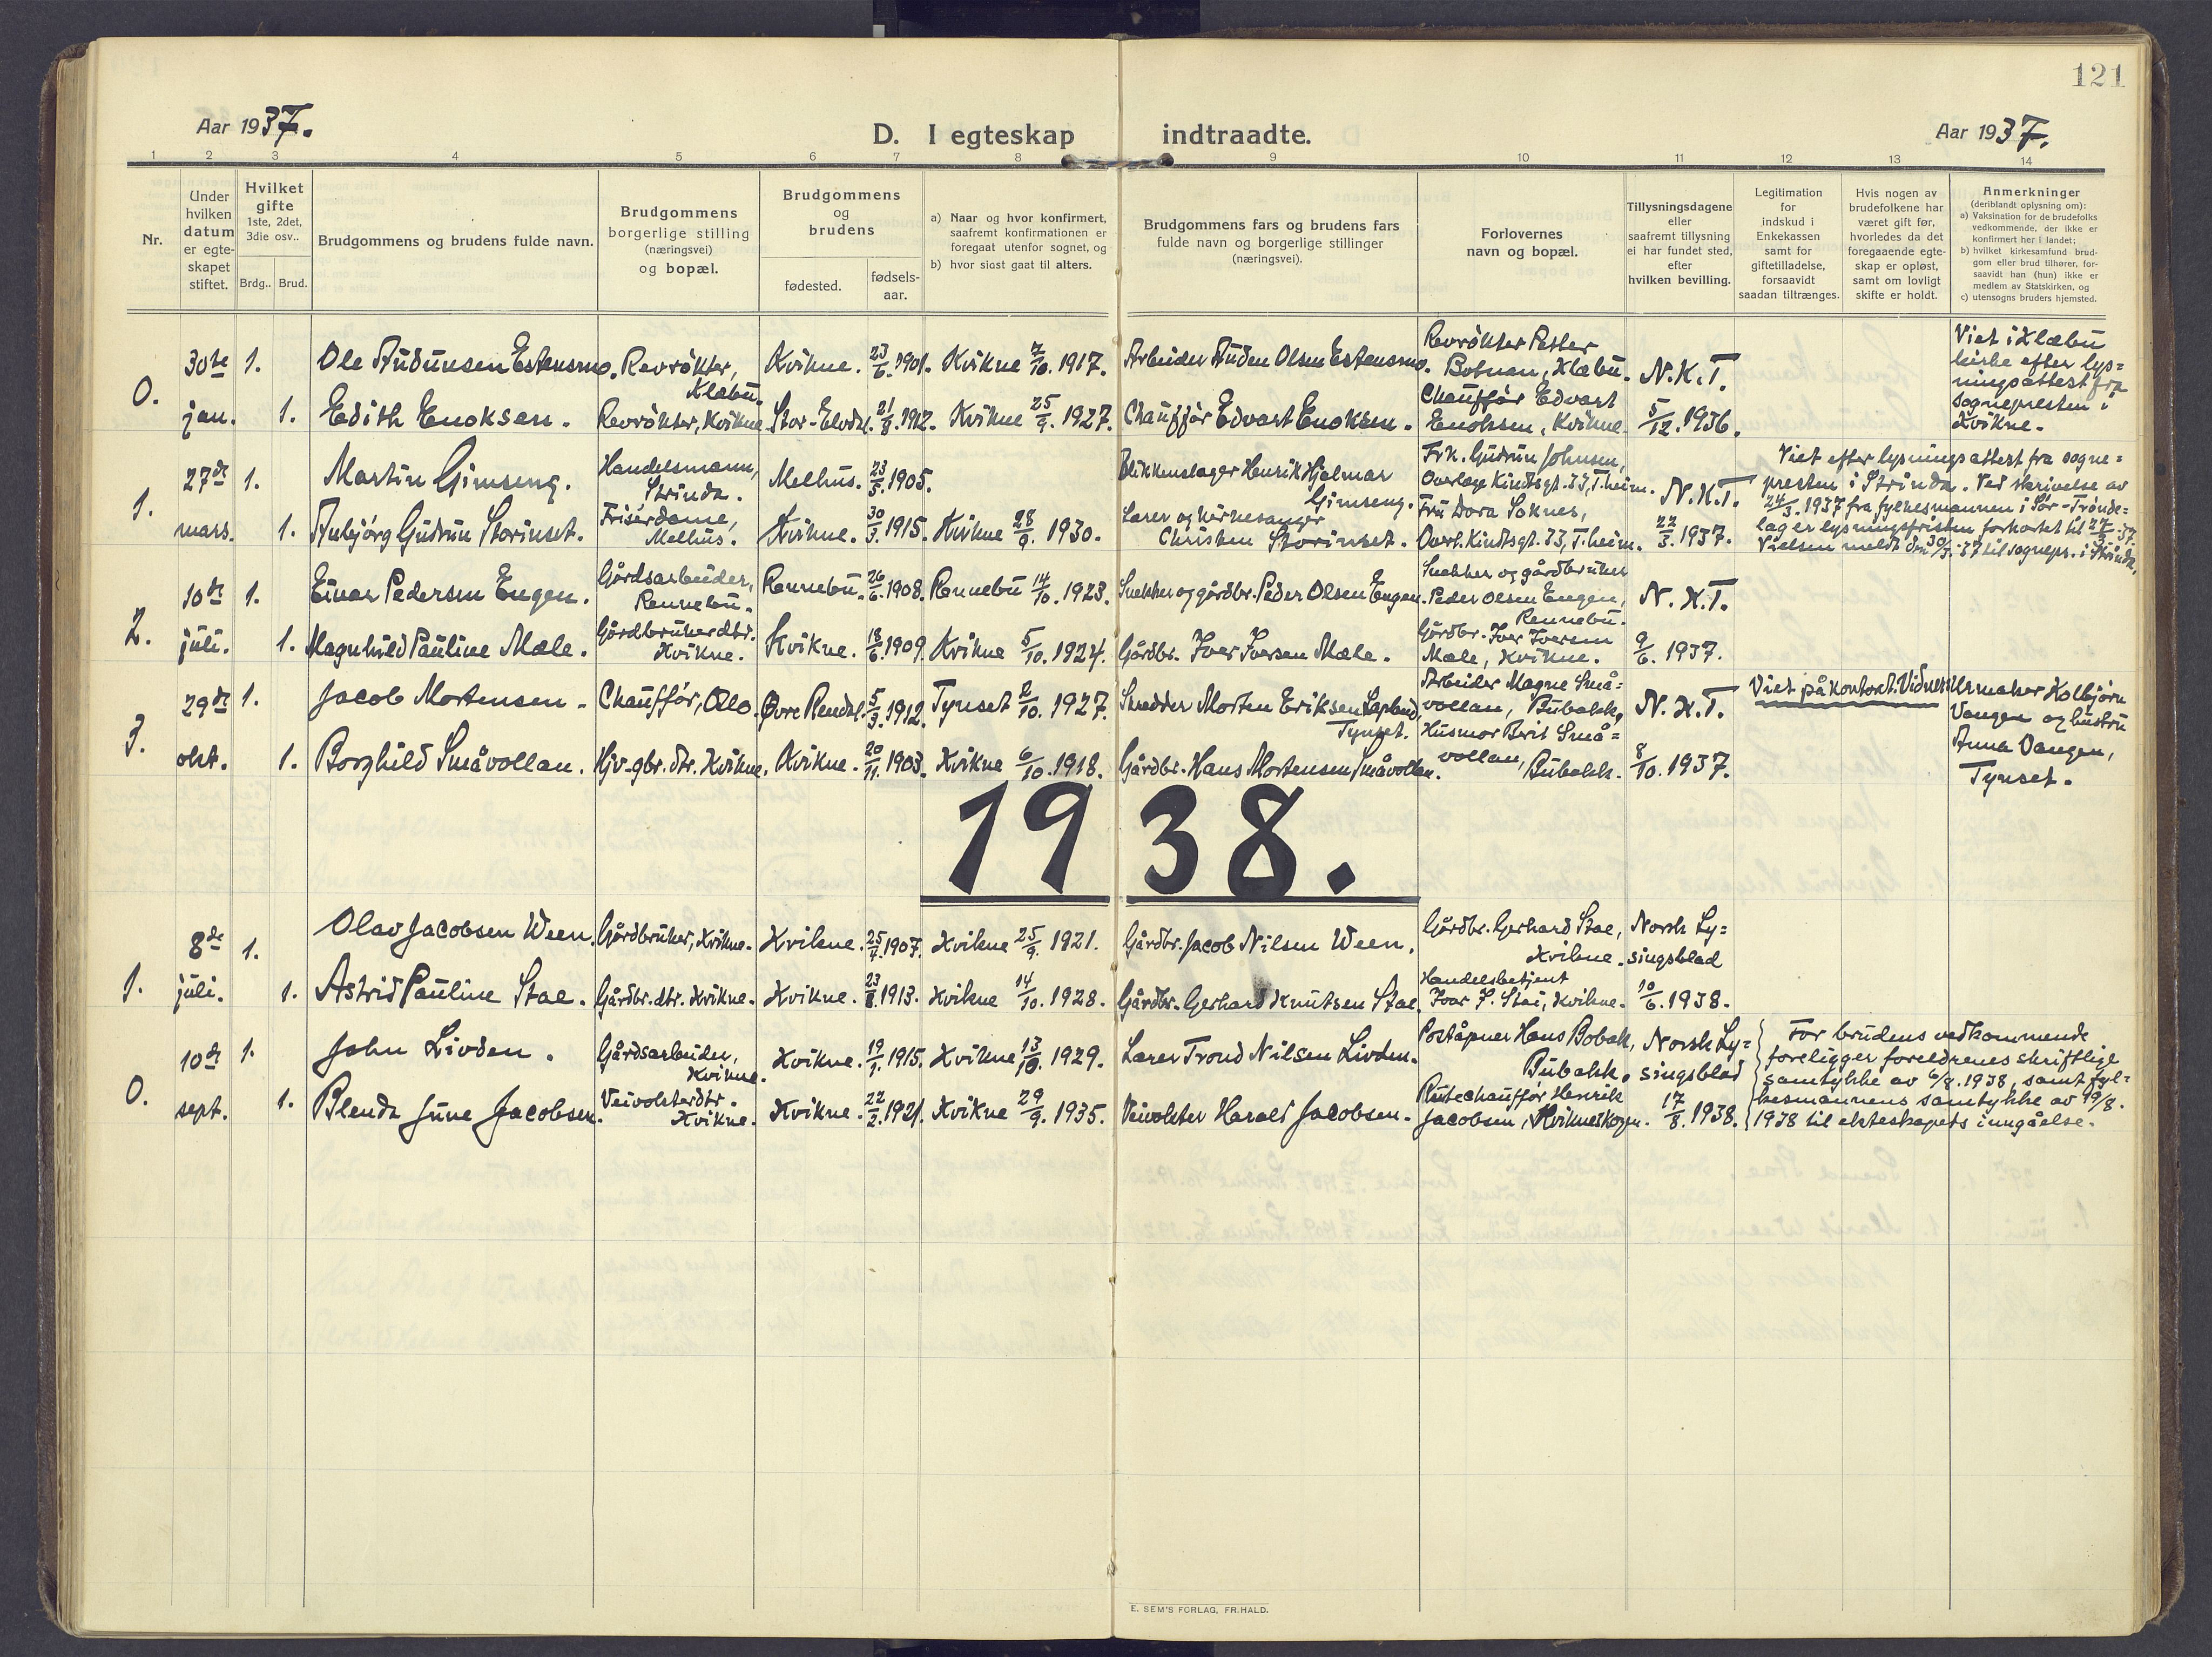 121
Aar 1937.
D. I egteskap indtraadte.
Aar 1937.
1 2 3 4 5 6 7 8 9 10 11 12 13 14
Nr.
Under
hvilken
datum
er egte-
skapet
stiftet.
Hvilket
gifte
1ste, 2det,
3die osv..
Brdg.. Brud.
Brudgommens og brudens fulde navn.
Brudgommens
borgerlige stilling
(næringsvei)
og bopæl.
Brudgommens
og
brudens
fødested.
fødsels-
aar.
a) Naar og hvor konfirmert,
saafremt konfirmationen er
foregaat utenfor sognet, og
b) hvor sidst gaat til alters.
Brudgommens fars og brudens fars
fulde navn og borgerlige stillinger
(næringsvei).
Forlovernes
navn og bopæl.
Tillysningsdagene
eller
saafremt tillysning
ei har fundet sted,
efter
hvilken bevilling.
Legitimation
for
indskud i
Enkekassen
samt for
giftetilladelse,
forsaavidt
saadan tiltrænges.
Hvis nogen av
brudefolkene har
været gift før,
hvorledes da det
foregaaende egte-
skap er opløst,
samt om lovligt
skifte er holdt.
Anmerkninger
(deriblandt oplysning om):
a) Vaksination for de brudefolks
vedkommende, der ikke er
konfirmert her i landet;
b) hvilket kirkesamfund brud-
gom eller brud tilhører, for-
saavidt han (hun) ikke er
medlem av Statskirken, og
c) utensogns bruders hjemsted.
0.
30te 1. Ole Audunsen Estensmo. Revrökter, Klæbu. Kvikne. 23/6. 1901. Kvikne 7/10. 1917. Arbeider Auden Olsen Estensmo. Revrökter Petter
Botnan, Klæbu. N.K.T.
jan. 1. Edith Enoksen. Revrökter, Kvikne. Stor-Elvdal. 21/8. 1912. Kvikne 25/9. 1927. Chaufför Edvart Enoksen. Chaufför Edvart
Enoksen, Kvikne. 5/12. 1936.
Viet i Klæbu
kirke efter lys-
ningsattest fra
sognepresten i
Kvikne.
1.
27de 1. Martin Gimseng. Handelsmann,
Strinda. Melhus. 23/5. 1905. Blikkenslager Henrik Hjalmar
Gimseng. Frk. Gudrun Johnsen,
Overlege Kindtsgt. 33, T.heim. N.K.T.
mars. 1. Aubjörg Gudrun Storinset. Frisérdame,
Melhus. Kvikne. 30/3. 1915. Kvikne 28/9. 1930. Lærer og kirkesanger
Christen Storinset. Fru Dora Soknes,
Overl. Kindtsgt. 33, T.heim. 22/3. 1937.
Viet efter lysningsattest fra sogne=
presten i Strinda. Ved skrivelse av
24/3. 1937 fra fylkesmannen i Sör-Trönde=
lag er lysningsfristen forkortet til 27/3. 37.
Vielsen meldt den 30/3. 37 til sognepr. i Strinda.
2.
10de 1. Einar Pedersen Engen. Gårdsarbeider,
Rennebu. Rennebu. 26/6. 1908. Rennebu 14/10. 1923. Snekker og gårdbr. Peder Olsen Engen. Snekker og gårdbruker
Peder Olsen Engen,
Rennebu. N.K.T.
juli. 1. Magnhild Pauline Mæle. Gårdbrukerdtr.
Kvikne. Kvikne. 18/6. 1909. Kvikne 5/10. 1924. Gårdbr. Iver Iversen Mæle. Gårdbr. Iver Iversen
Mæle, Kvikne. 9/6. 1937.
3.
29de 1. Jacob Mortensen. Chaufför, Oslo. Övre Rendal. 5/3. 1912. Tynset 2/10. 1927. Skredder Morten Eriksen Lapland,
Tynset. Arbeider Magne Små=
vollan, Bubakk. N.K.T.
okt. 1. Borghild Småvollan. Hjv.-gbr. dtr. Kvikne. Kvikne. 20/11. 1903. Kvikne 6/10. 1918. Gårdbr. Hans Mortensen Småvollan. Husmor Berit Små=
vollan, Bubakk. 8/10. 1937.
Viet på kontoret. Vidner: Urmaker Kolbjörn
Vangen og hustru
Anna Vangen,
Tynset.
1938.
1.
8de 1. Olav Jacobsen Ween. Gårdbruker, Kvikne. Kvikne. 25/4. 1907. Kvikne 25/9. 1921. Gårdbr. Jacob Nilsen Ween. Gårdbr. Gerhard Stae,
Kvikne. Norsk Ly=
singsblad
juli. 1. Astrid Pauline Stae. Gårdbr. dtr. Kvikne. Kvikne. 23/8. 1913. Kvikne 14/10. 1928. Gårdbr. Gerhard Knutsen Stae. Handelsbetjent
Ivar P. Stai, Kvikne. 10/6. 1938.
0.
10de 1. John Livden. Gårdsarbeider,
Kvikne. Kvikne. 19/1. 1915. Kvikne 13/10. 1929. Lærer Trond Nilsen Livden. Poståpner Hans Bobak,
Bubakk. Norsk Ly=
singsblad
sept. 1. Blenda June Jacobsen. Veivokterdtr.
Kvikne. Kvikne. 22/2. 1921. Kvikne 29/9. 1935. Veivokter Harald Jacobsen. Rutechauffør Henrik
Jacobsen, Kvikneskogen. 17/8. 1938.
For brudens vedkommende
foreligger foreldrenes skriftlige
samtykke av 6/8. 1938, samt fyl=
kesmannens samtykke av 19/8.
1938 til ekteskapets inngåelse.
E. SEM'S FORLAG, FR.HALD.